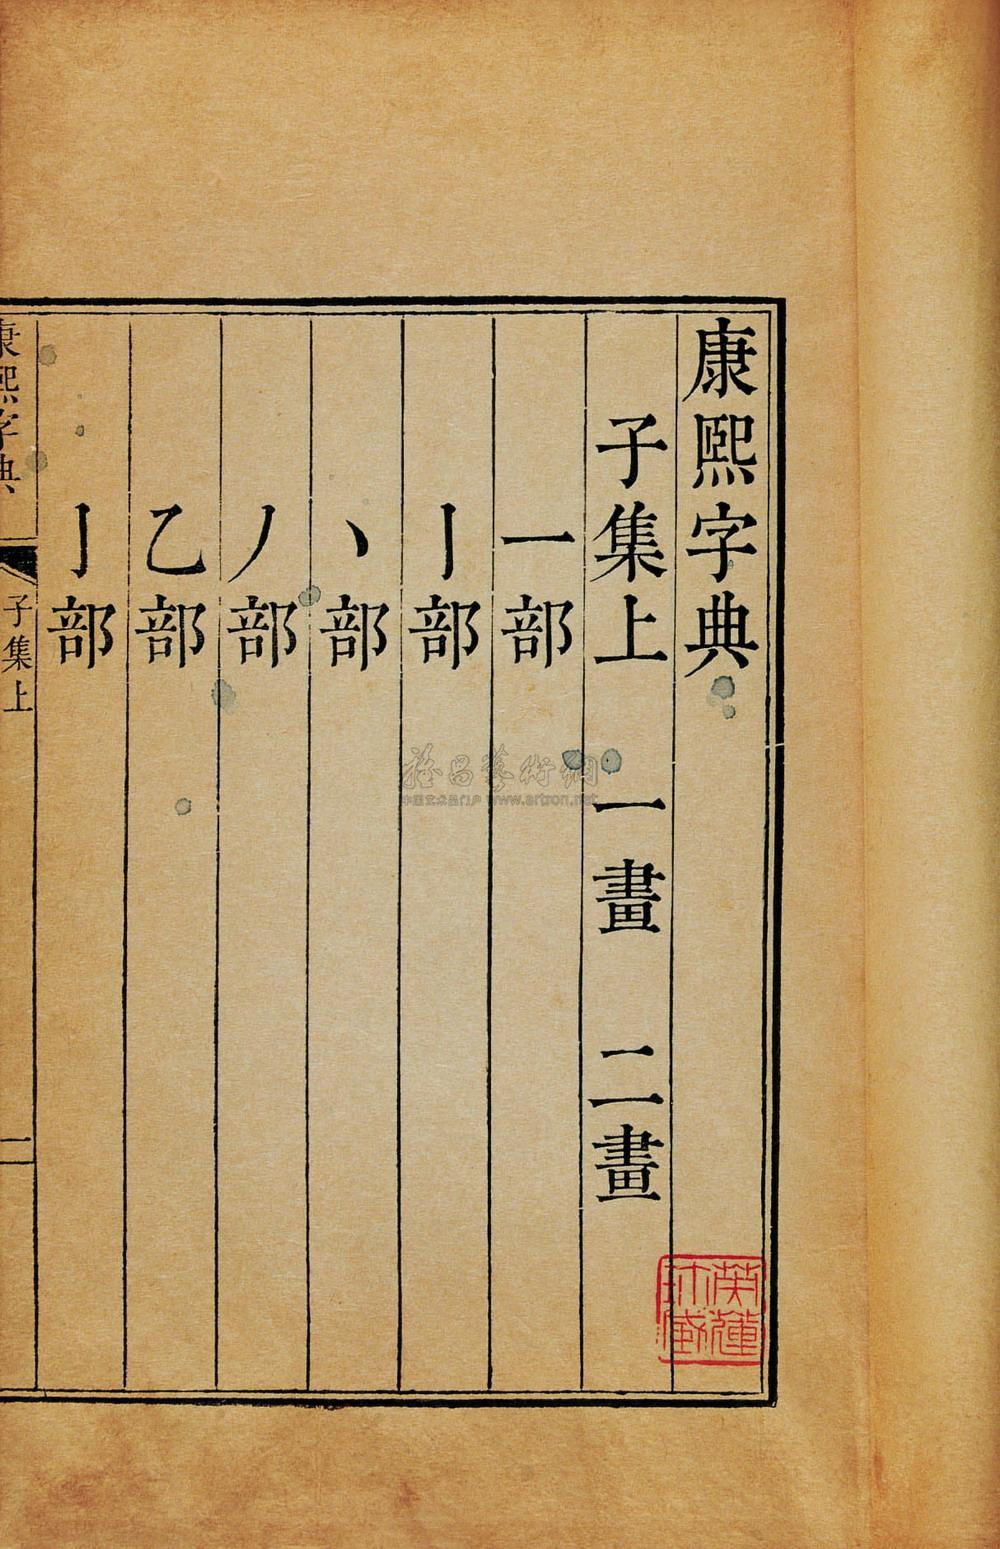 康熙字典
子集上 一畫 二畫
一部
丨部
丶部
丿部
乙部
亅部
康熙字典
子集上
一
雅昌藝術網
中国艺术品门户 www.artron.net